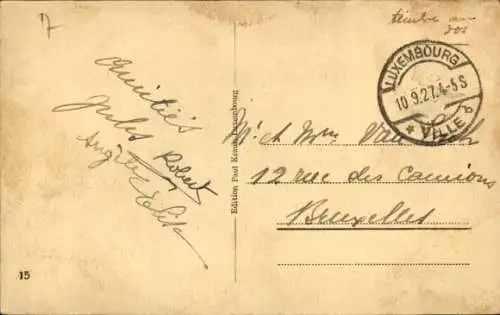 7
timbre au
dos
LUXEMBOURG
10.9.27.4-5S
* VILLE
Amitiés
Jules Robert
Edition Paul Kraus, Luxembourg
Mr et Mme Van
12 rue des Camions
Bruxelles
15